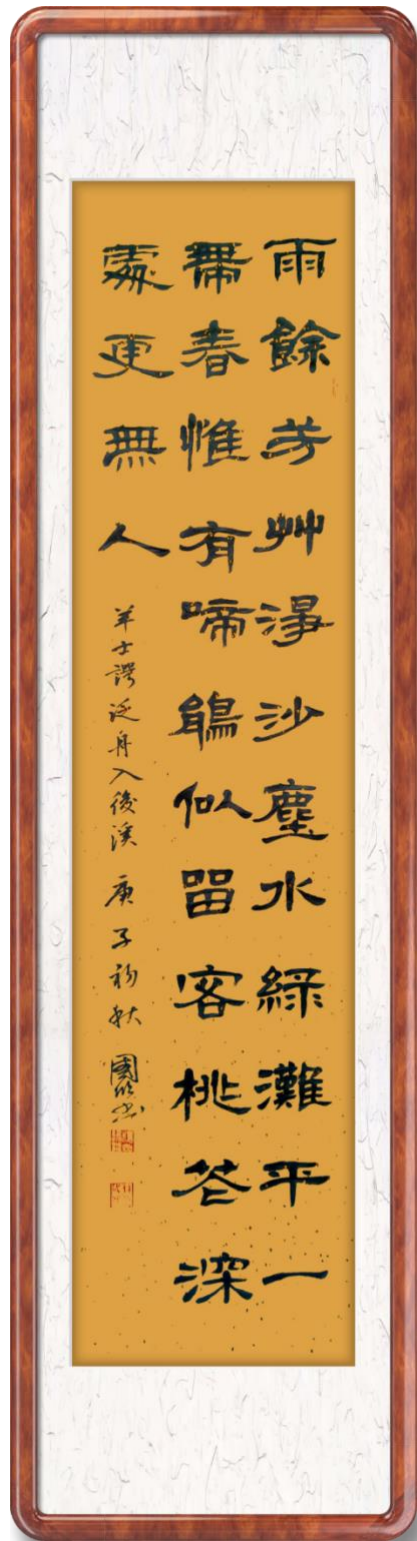 雨餘芳艸淨沙塵水綠灘平一
帶春惟有啼鵑似留客桃花深
處更無人
羊士諤泛舟入後溪 庚子初秋 國